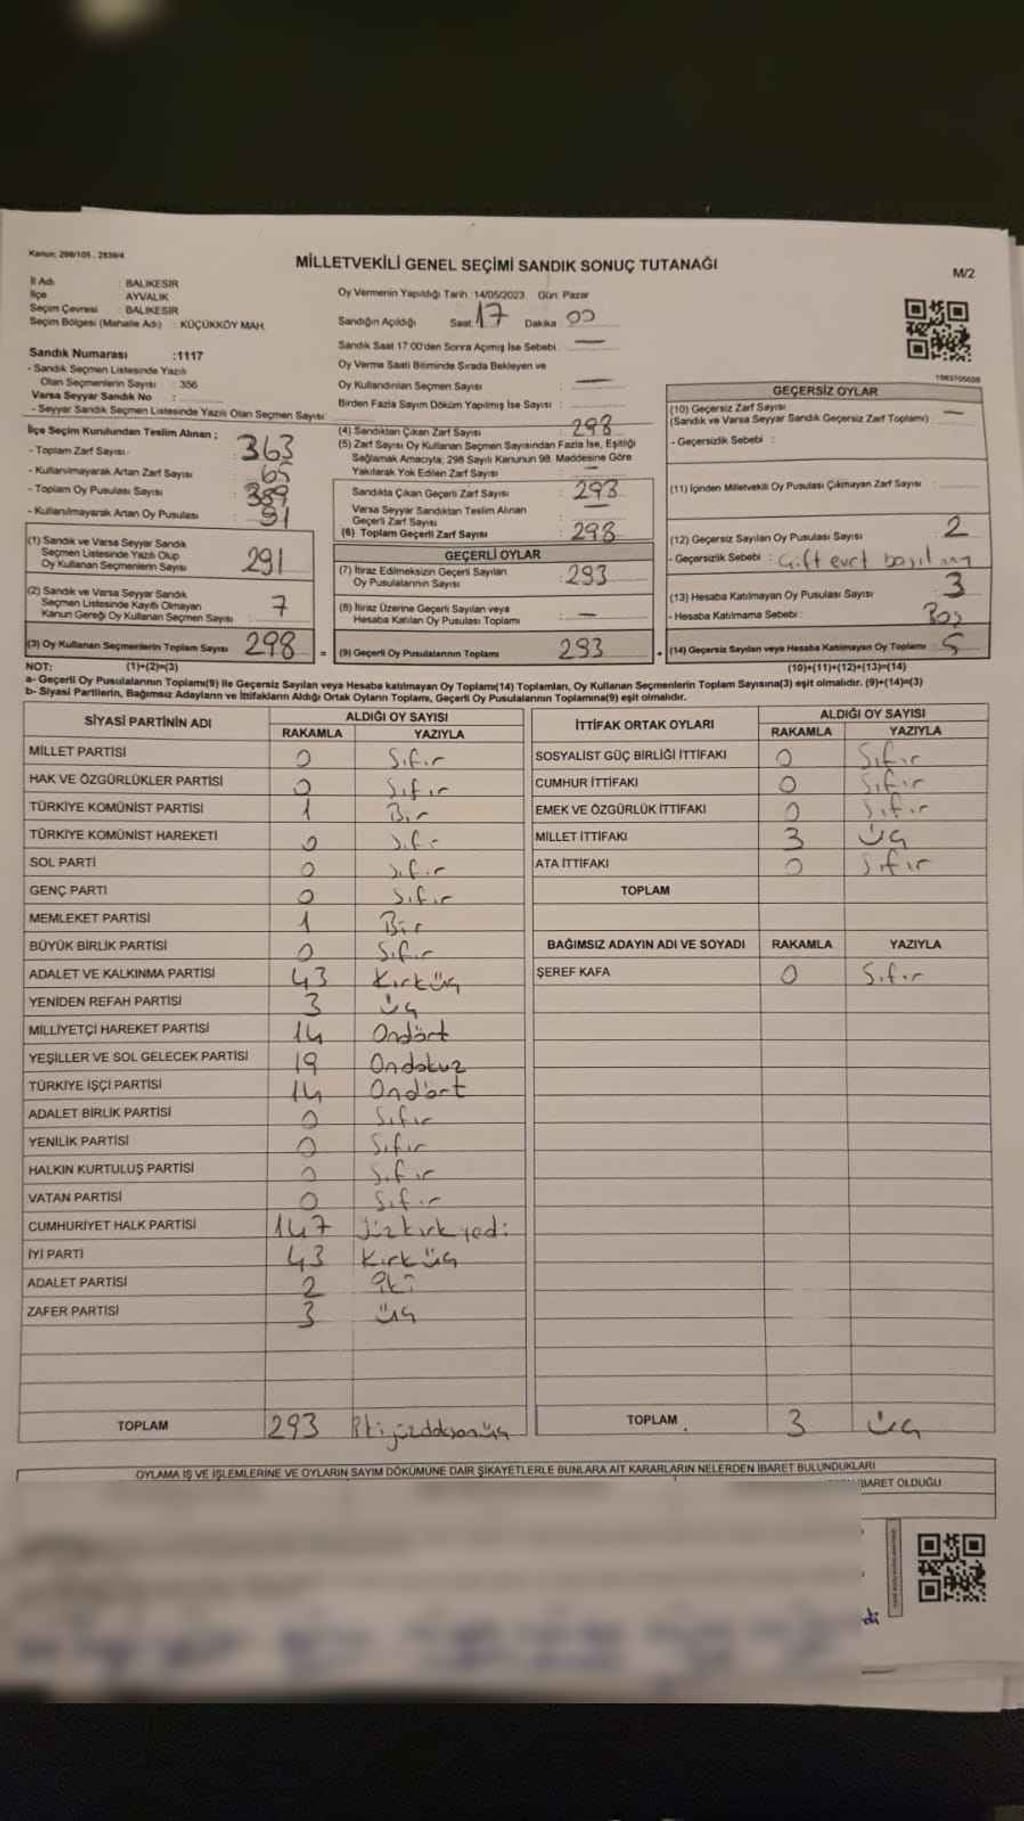 Kanun: 298/105 , 2839/4
MİLLETVEKİLİ GENEL SEÇİMİ SANDIK SONUÇ TUTANAĞI
M/2
İl Adı : BALIKESİR
İlçe : AYVALIK
Seçim Çevresi : BALIKESİR
Seçim Bölgesi (Mahalle Adı) : KÜÇÜKKÖY MAH.
Oy Vermenin Yapıldığı Tarih :14/05/2023 Gün: Pazar
Sandığın Açıldığı Saat: 17 Dakika 00
Sandık Saat 17:00'den Sonra Açılmış İse Sebebi : —
Oy Verme Saati Bitiminde Sırada Bekleyen ve
Oy Kullandırılan Seçmen Sayısı : —
Birden Fazla Sayım Döküm Yapılmış İse Sayısı :
Sandık Numarası :1117
- Sandık Seçmen Listesinde Yazılı
Olan Seçmenlerin Sayısı : 356
Varsa Seyyar Sandık No :
- Seyyar Sandık Seçmen Listesinde Yazılı Olan Seçmen Sayısı:
İlçe Seçim Kurulundan Teslim Alınan ;
- Toplam Zarf Sayısı : 363
- Kullanılmayarak Artan Zarf Sayısı : 65
- Toplam Oy Pusulası Sayısı : 389
- Kullanılmayarak Artan Oy Pusulası : 91
(1) Sandık ve Varsa Seyyar Sandık
Seçmen Listesinde Yazılı Olup
Oy Kullanan Seçmenlerin Sayısı : 291
(2) Sandık ve Varsa Seyyar Sandık
Seçmen Listesinde Kayıtlı Olmayan
Kanun Gereği Oy Kullanan Seçmen Sayısı : 7
(3) Oy Kullanan Seçmenlerin Toplam Sayısı : 298 =
(4) Sandıktan Çıkan Zarf Sayısı : 298
(5) Zarf Sayısı Oy Kullanan Seçmen Sayısından Fazla İse, Eşitliği
Sağlamak Amacıyla; 298 Sayılı Kanunun 98. Maddesine Göre
Yakılarak Yok Edilen Zarf Sayısı : —
Sandıkta Çıkan Geçerli Zarf Sayısı : 293
Varsa Seyyar Sandıktan Teslim Alınan
Geçerli Zarf Sayısı : —
(6) Toplam Geçerli Zarf Sayısı : 298
GEÇERLİ OYLAR
(7) İtiraz Edilmeksizin Geçerli Sayılan
Oy Pusulalarının Sayısı : 293
(8) İtiraz Üzerine Geçerli Sayılan veya
Hesaba Katılan Oy Pusulası Toplamı : —
(9) Geçerli Oy Pusulalarının Toplamı : 293 +
GEÇERSİZ OYLAR
(10) Geçersiz Zarf Sayısı
(Sandık ve Varsa Seyyar Sandık Geçersiz Zarf Toplamı) : —
- Geçersizlik Sebebi :
(11) İçinden Milletvekili Oy Pusulası Çıkmayan Zarf Sayısı :
(12) Geçersiz Sayılan Oy Pusulası Sayısı : 2
- Geçersizlik Sebebi : Çift evet
(13) Hesaba Katılmayan Oy Pusulası Sayısı : 3
- Hesaba Katılmama Sebebi : Boş
(14) Geçersiz Sayılan veya Hesaba Katılmayan Oy Toplamı : 5
NOT: (1)+(2)=(3) (10)+(11)+(12)+(13)=(14)
a- Geçerli Oy Pusulalarının Toplamı(9) ile Geçersiz Sayılan veya Hesaba katılmayan Oy Toplamı(14) Toplamları, Oy Kullanan Seçmenlerin Toplam Sayısına(3) eşit olmalıdır. (9)+(14)=(3)
b- Siyasi Partilerin, Bağımsız Adayların ve İttifakların Aldığı Ortak Oyların Toplamı, Geçerli Oy Pusulalarının Toplamına(9) eşit olmalıdır.
SİYASİ PARTİNİN ADI ALDIĞI OY SAYISI
RAKAMLA YAZIYLA
MİLLET PARTİSİ 0 Sıfır
HAK VE ÖZGÜRLÜKLER PARTİSİ 0 Sıfır
TÜRKİYE KOMÜNİST PARTİSİ 1 Bir
TÜRKİYE KOMÜNİST HAREKETİ 0 Sıfır
SOL PARTİ 0 Sıfır
GENÇ PARTİ 0 Sıfır
MEMLEKET PARTİSİ 1 Bir
BÜYÜK BİRLİK PARTİSİ 0 Sıfır
ADALET VE KALKINMA PARTİSİ 43 Kırküç
YENİDEN REFAH PARTİSİ 3 üç
MİLLİYETÇİ HAREKET PARTİSİ 14 Ondört
YEŞİLLER VE SOL GELECEK PARTİSİ 19 Ondokuz
TÜRKİYE İŞÇİ PARTİSİ 14 Ondört
ADALET BİRLİK PARTİSİ 0 Sıfır
YENİLİK PARTİSİ 0 Sıfır
HALKIN KURTULUŞ PARTİSİ 0 Sıfır
VATAN PARTİSİ 0 Sıfır
CUMHURİYET HALK PARTİSİ 147 Yüzkırkyedi
İYİ PARTİ 43 Kırküç
ADALET PARTİSİ 2 İki
ZAFER PARTİSİ 3 üç
TOPLAM 293 İkiyüzdoksanüç
İTTİFAK ORTAK OYLARI ALDIĞI OY SAYISI
RAKAMLA YAZIYLA
SOSYALİST GÜÇ BİRLİĞİ İTTİFAKI 0 Sıfır
CUMHUR İTTİFAKI 0 Sıfır
EMEK VE ÖZGÜRLÜK İTTİFAKI 0 Sıfır
MİLLET İTTİFAKI 3 üç
ATA İTTİFAKI 0 Sıfır
TOPLAM
BAĞIMSIZ ADAYIN ADI VE SOYADI RAKAMLA YAZIYLA
ŞEREF KAFA 0 Sıfır
TOPLAM 3 üç
OYLAMA İŞ VE İŞLEMLERİNE VE OYLARIN SAYIM DÖKÜMÜNE DAİR ŞİKAYETLERLE BUNLARA AİT KARARLARIN NELERDEN İBARET BULUNDUKLARI
İBARET OLDUĞU